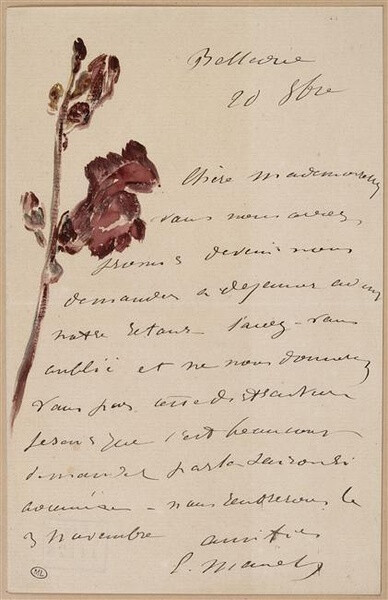 Bellevue
20 8bre
Chère mademoiselle
vous nous aviez
promis de venir nous
demander à dejeuner avant
notre retour l'avez-vous
oublié et ne nous donnerez
vous pas cette distraction
je sais que c'est beaucoup
demander par la saison si
avancée - nous rentrerons le
3 novembre amitiés
E. Manet
ML